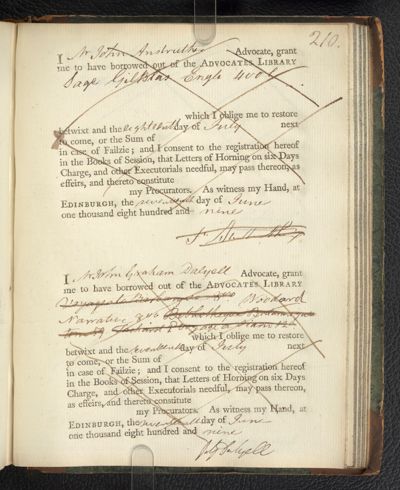 210.
I Mr John Anstruther Advocate, grant
me to have borrowed out of the ADVOCATES LIBRARY
Sage Gilblas Engle 4 vols
which I oblige me to restore
betwixt and the day of July next
to come, or the Sum of
in case of Failzie; and I consent to the registration hereof
in the Books of Session, that Letters of Horning on six Days
Charge, and other Executorials needful, may pass thereon, as
effeirs, and thereto constitute
my Procurators. As witness my Hand, at
EDINBURGH, the seventeenth day of June
one thousand eight hundred and nine
I Mr John Graham Dalyell Advocate, grant
me to have borrowed out of the ADVOCATES LIBRARY
Woodard
Narrative
which I oblige me to restore
betwixt and the day of July next
to come, or the Sum of
in case of Failzie; and I consent to the registration hereof
in the Books of Session, that Letters of Horning on six Days
Charge, and other Executorials needful, may pass thereon,
as effeirs, and thereto constitute
my Procurators. As witness my Hand, at
EDINBURGH, the seventeenth day of June
one thousand eight hundred and nine